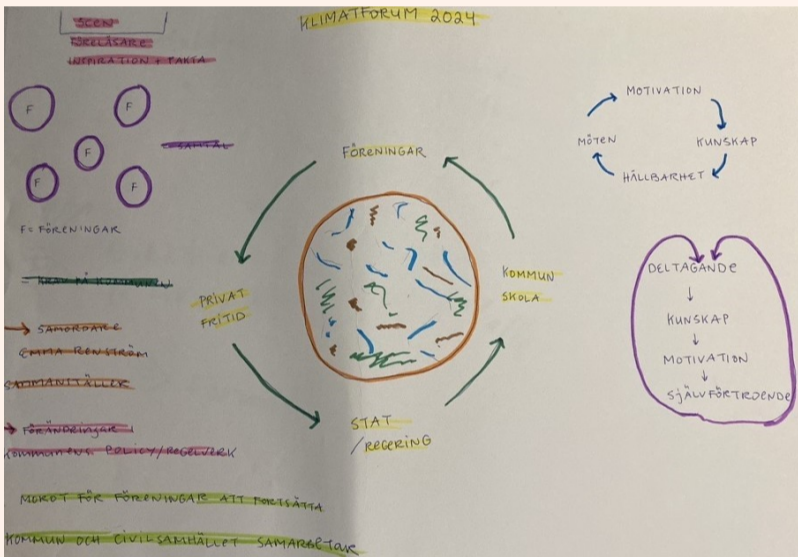 KLIMATFORUM 2024
SCEN
FÖRELÄSARE
INSPIRATION + FAKTA
F
F
F
F
F
SAMTAL
F= FÖRENINGAR
KOMMUNEN
→ SAMORDARE
EMMA RENSTRÖM
SAMMANSTÄLLER
→ FÖRÄNDRINGAR I
KOMMUNENS POLICY/REGELVERK
MOROT FÖR FÖRENINGAR ATT FORTSÄTTA
KOMMUN OCH CIVILSAMHÄLLET SAMARBETAR
FÖRENINGAR
PRIVAT
FRITID
KOMMUN
SKOLA
STAT
/REGERING
MOTIVATION
KUNSKAP
HÅLLBARHET
MÖTEN
DELTAGANDE
↓
KUNSKAP
↓
MOTIVATION
↓
SJÄLVFÖRTROENDE